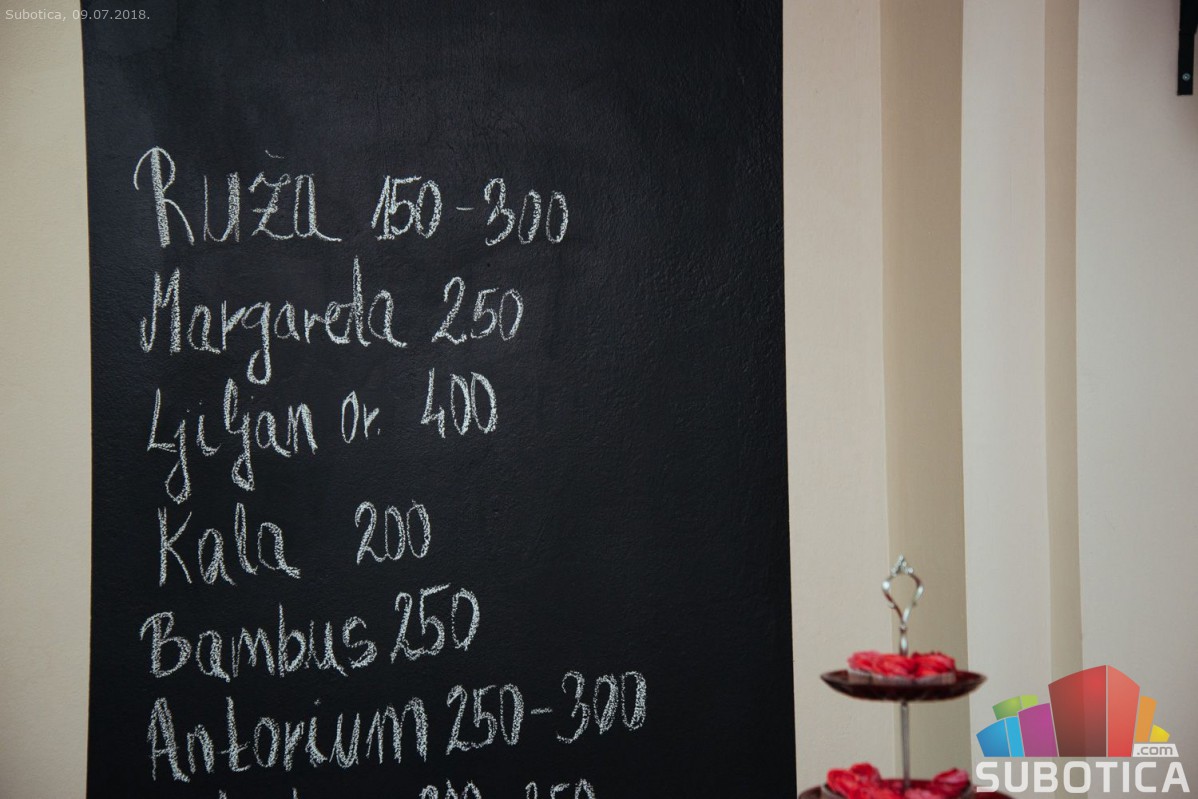 Subotica, 09.07.2018.
Ruža 150-300
Margareta 250
Ljiljan or. 400
Kala 200
Bambus 250
Antorium 250-300
.com
SUBOTICA